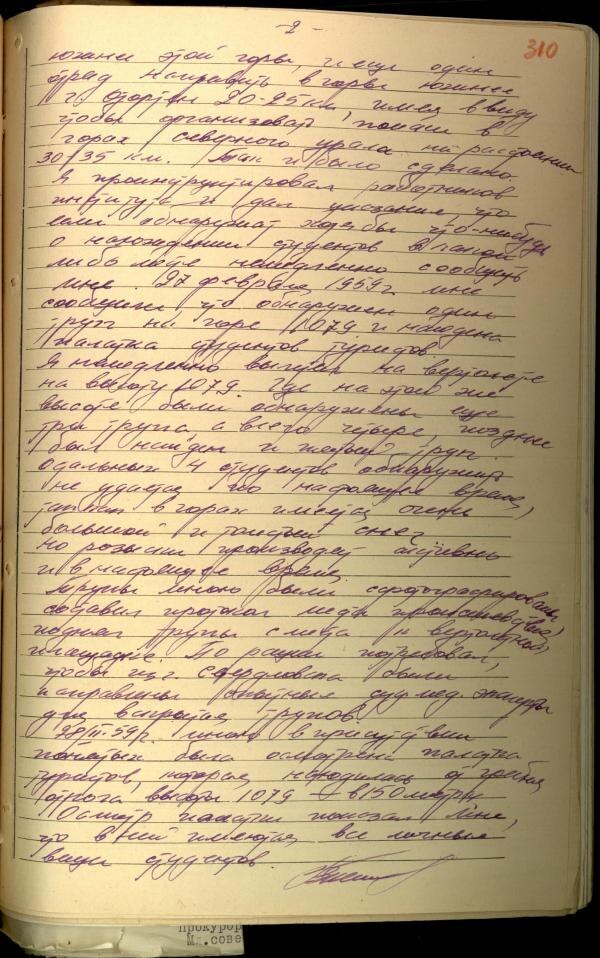 - 2 -
310
южнее этой горы, и еще один
отряд направить в горы южнее
г. Отортен 20-25 км имея ввиду
чтобы организовать поиски в
горах северного урала на расстоянии
30-35 км. Так и было сделано.
Я проинструктировал работников
и дал указания, что
если обнаружат хотя бы что-нибудь
о нахождении студентов в каком
либо месте немедленно сообщить
мне. 27 февраля 1959 г. мне
сообщили что обнаружен один
труп на горе 1079 и найдена
палатка студентов туристов
Я немедленно вылетел на вертолете
на высоту 1079. Где на этой же
высоте были обнаружены еще
три трупа а всего четыре, позднее
был найден и пятый труп.
Остальных 4 студентов обнаружить
не удается по настоящее время,
так как в горах имеется очень
большой и толстый снег
но розыски производят активно
и в настоящее время.
Трупы мною были сфотографированы
составил протокол места происшествия,
поднял трупы с места к вертолетной
площадке. По рации потребовал,
чтобы из г. Свердловска были
направлены опытные суд. мед. эксперты
для вскрытия трупов.
28/II-59 г. мною в присутствии
понятых была осмотрена палатка
туристов, которая находилась от гребня
отрога высоты 1079 - в 150 метрах
Осмотр палатки показал мне,
что в ней имеются все личные
вещи студентов
Прокурор
Мл. сове